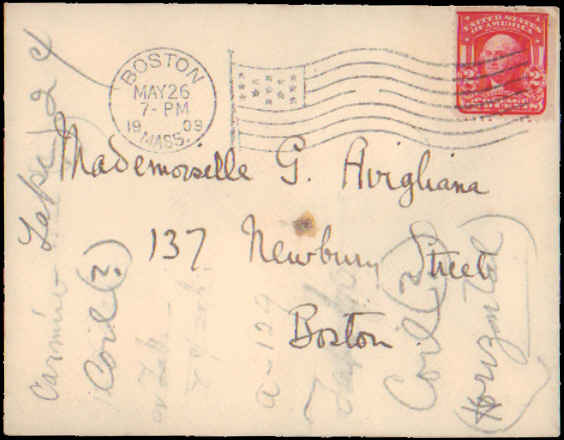 BOSTON
MAY 26
7-PM
1909
MASS.
UNITED STATES
OF AMERICA
2 2
Mademoiselle G. Avigliana
137 Newbury Street
Boston.
Carmine Lake 2 c
Coil (2)
Coil (2)
Horizontal